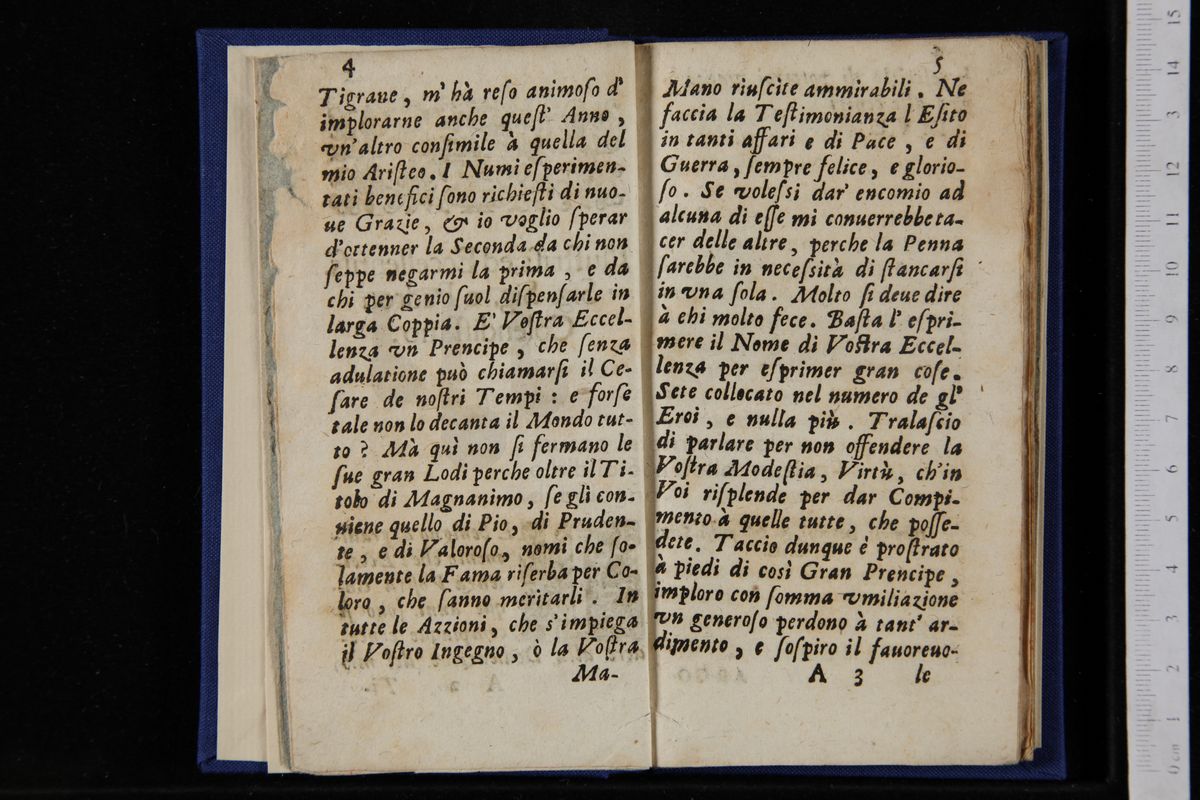 4
Tigrane, m'hà reſo animoſo d'
implorarne anche queſt' Anno,
vn'altro conſimile à quella del
mio Ariſteo. I Numi eſperimen-
tati benefici ſono richieſti di nuo-
ue Grazie, & io voglio ſperar
d'ottenner la Seconda da chi non
ſeppe negarmi la prima, e da
chi per genio ſuol diſpenſarle in
larga Coppia. E' Voſtra Eccel-
lenza vn Prencipe, che ſenza
adulatione può chiamarſi il Ce-
ſare de noſtri Tempi : e forſe
tale non lo decanta il Mondo tut-
to ? Mà quì non ſi fermano le
ſue gran Lodi perche oltre il Ti-
tolo di Magnanimo, ſe gli con-
uiene quello di Pio, di Pruden-
te, e di Valoroſo, nomi che ſo-
lamente la Fama riſerba per Co-
loro, che ſanno meritarli. In
tutte le Azzioni, che s'impiega
il Voſtro Ingegno, ò la Voſtra
Ma-
5
Mano riuſcite ammirabili. Ne
faccia la Teſtimonianza l Eſito
in tanti affari e di Pace, e di
Guerra, ſempre felice, e glorio-
ſo. Se voleſsi dar' encomio ad
alcuna di eſſe mi conuerrebbe ta-
cer delle altre, perche la Penna
ſarebbe in neceſsità di ſtancarſi
in vna ſola. Molto ſi deue dire
à ehi molto fece. Baſta l' eſpri-
mere il Nome di Voſtra Eccel-
lenza per eſprimer gran coſe.
Sete collocato nel numero de gl'
Eroi, e nulla più. Tralaſcio
di parlare per non offendere la
Voſtra Modeſtia, Virtù, ch'in
Voi riſplende per dar Compi-
mento à quelle tutte, che poſſe-
dete. Taccio dunque è proſtrato
à piedi di così Gran Prencipe,
imploro con ſomma vmiliazione
vn generoſo perdono à tant' ar-
dimento, e ſoſpiro il fauoreuo-
A 3 le